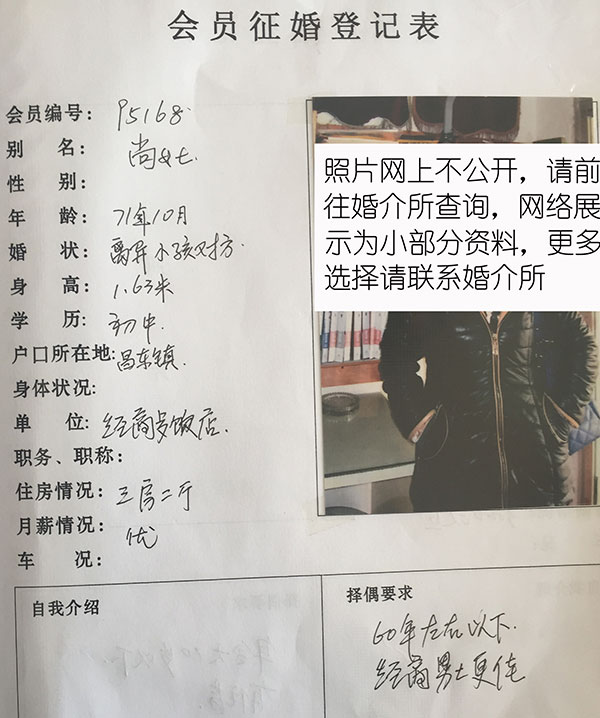 会员征婚登记表
会员编号： 95168
别 名： 尚女士
性 别：
年 龄： 71年10月
婚 状： 离异小孩对方
身 高： 1.63米
学 历： 初中
户口所在地: 昌东镇
身体状况:
单 位: 经商 饭店
职务、职称：
住房情况： 三房二厅
月薪情况： 优
车 况：
照片网上不公开，请前
往婚介所查询，网络展
示为小部分资料，更多
选择请联系婚介所
自我介绍
择偶要求
60年左右以下
经商男士更佳